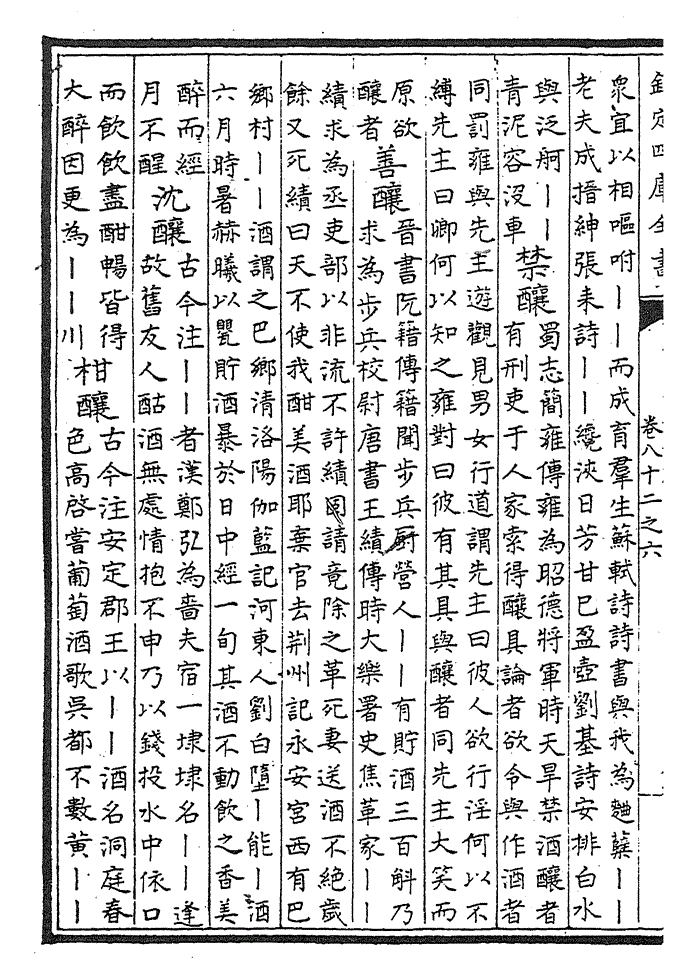 欽定四庫全書
卷八十二之六
衆宜以相嘔咐丨丨而成育羣生蘇軾詩詩書與我為麴糵丨丨
老夫成搢紳張耒詩丨丨纔浹日芳甘已盈壺劉基詩安排白水
與泛舸丨丨
青泥容没車
禁釀
蜀志簡雍傳雍為昭德將軍時天旱禁酒釀者
有刑吏于人家索得釀具論者欲令與作酒者
同罰雍與先主遊觀見男女行道謂先主曰彼人欲行淫何以不
縛先主曰卿何以知之雍對曰彼有其具與釀者同先主大笑而
原欲
釀者
善釀
晉書阮籍傳籍聞步兵厨營人丨丨有貯酒三百斛乃
求為步兵校尉唐書王績傳時大樂署史焦革家丨丨
績求為丞吏部以非流不許績固請竟除之革死妻送酒不絶歲
餘又死績曰天不使我酣美酒耶棄官去荆州記永安宫西有巴
鄉村丨丨酒謂之巴鄉清洛陽伽藍記河東人劉白墮丨能丨酒
六月時暑赫曦以甖貯酒暴於日中經一旬其酒不動飲之香美
醉而經
月不醒
沈釀
古今注丨丨者漢鄭弘為嗇夫宿一埭埭名丨丨逢
故舊友人酤酒無處情抱不申乃以錢投水中依口
而飲飲盡酣暢皆得
大醉因更為丨丨川
柑釀
古今注安定郡王以丨丨酒名洞庭春
色高啓嘗葡萄酒歌吳都不數黄丨丨